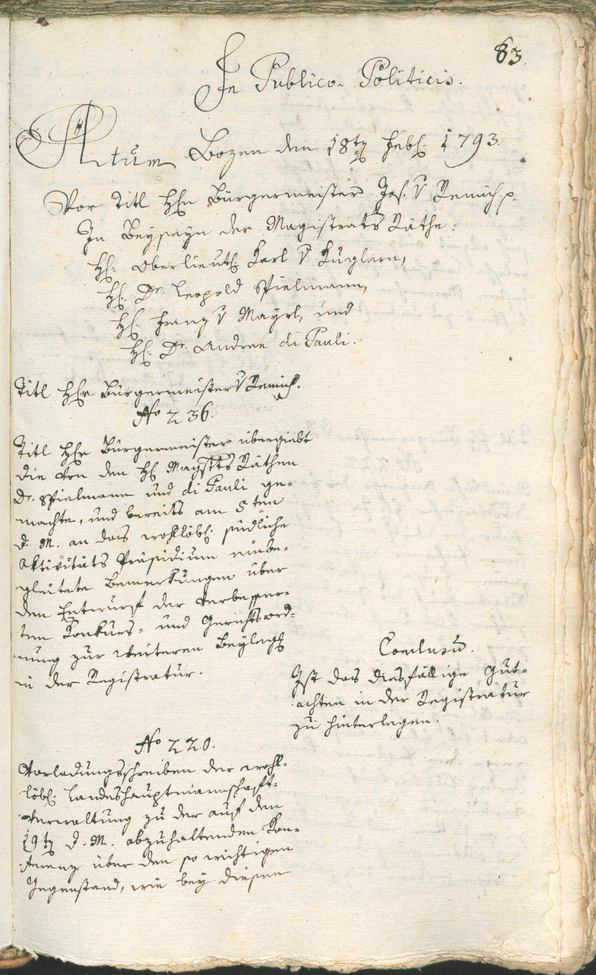 83.
In Publico-Politicis.
Actum Bozen den 18ten Feb: 1793.
Vor Titl Hhn Bürgermeister Jos: v Remich p.
In Beyseyn der Magistrats Räthe:
H: Oberlieut: Karl v Kuglern,
H: Dr. Leopold Spielmann,
H: Franz v Mayrl, und
H: Dr. Andree di Pauli.
Titl Hhr Bürgermeister v Remich.
No 236.
Titl Hhr Bürgermeister übergiebt
die von den HH Magistts Räthen
Dr. Spielmann und di Pauli ge-
machte, und bereits am 5ten
d. M. an das wohllöbl: südliche
Aktivitäts Präsidium einbe-
gleitete Bemerkungen über
den Entwurf der verbesser-
ten Konkurs- und Gerichtsord-
nung zur weiteren Beylage
in der Registratur.
Conclusum.
Ist das diesfällige Gut-
achten in der Registratur
zu hinterlegen.
No 220.
Vorladungsschreiben der wohl-
löbl: Landeshauptmannschaft-
Verwaltung zu der auf den
19ten d. M. abzuhaltenden Kon-
ferenz über den so wichtigen
Gegenstand, wie bey diesen